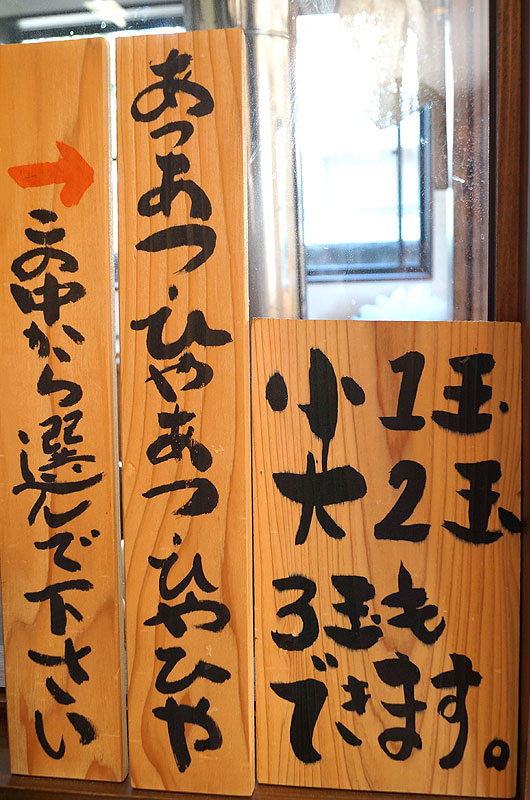 あつあつ・ひやあつ・ひやひや
この中から選んで下さい
小 1玉
大 2玉
3玉も
できます。